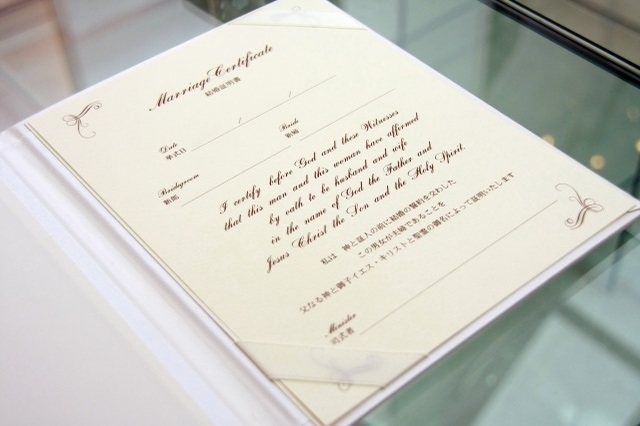 Marriage Certificate
結婚証明書
Date / /
挙式日
Bride
新婦
Bridegroom
新郎
I certify before God and these Witnesses
that this man and this woman have affirmed
by oath to be husband and wife
in the name of God the Father and
Jesus Christ the Son and the Holy Spirit.
私は 神と証人の前に結婚の誓約を交わした
この男女が夫婦であることを
父なる神と御子イエス・キリストと聖霊の御名によって証明いたします
Minister
司式者